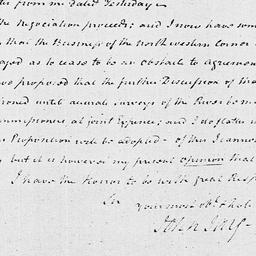 from me dated Yesterday
the Negociation proceeds; and I now have some
that the Business of the North western corner
aged as to cease to be an obstacle to agreement
proposed that the further Discussion of that
ioned until accurate surveys of the River be made
Commissioners at joint Expence; and I do flatter
Proposition will be adopted – of this I cannot
but it is however my present opinion that
I have the Honor to be with great Resp
Sir
your most obt. & hble
John Jay –